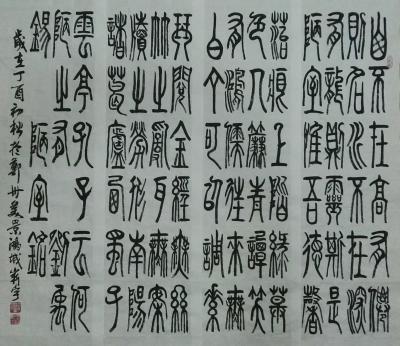 山不在高有僊
則名水不在深
有龍則靈斯是
陋室惟吾德馨
苔痕上階綠草
色入簾青談笑
有鴻儒往來無
白丁可以調素
琴閱金經無絲
竹之亂耳無案
牘之勞形南陽
諸葛廬西蜀子
雲亭孔子云何
陋之有劉禹
錫陋室銘
歲在丁酉初秋於鄭州美景鴻城